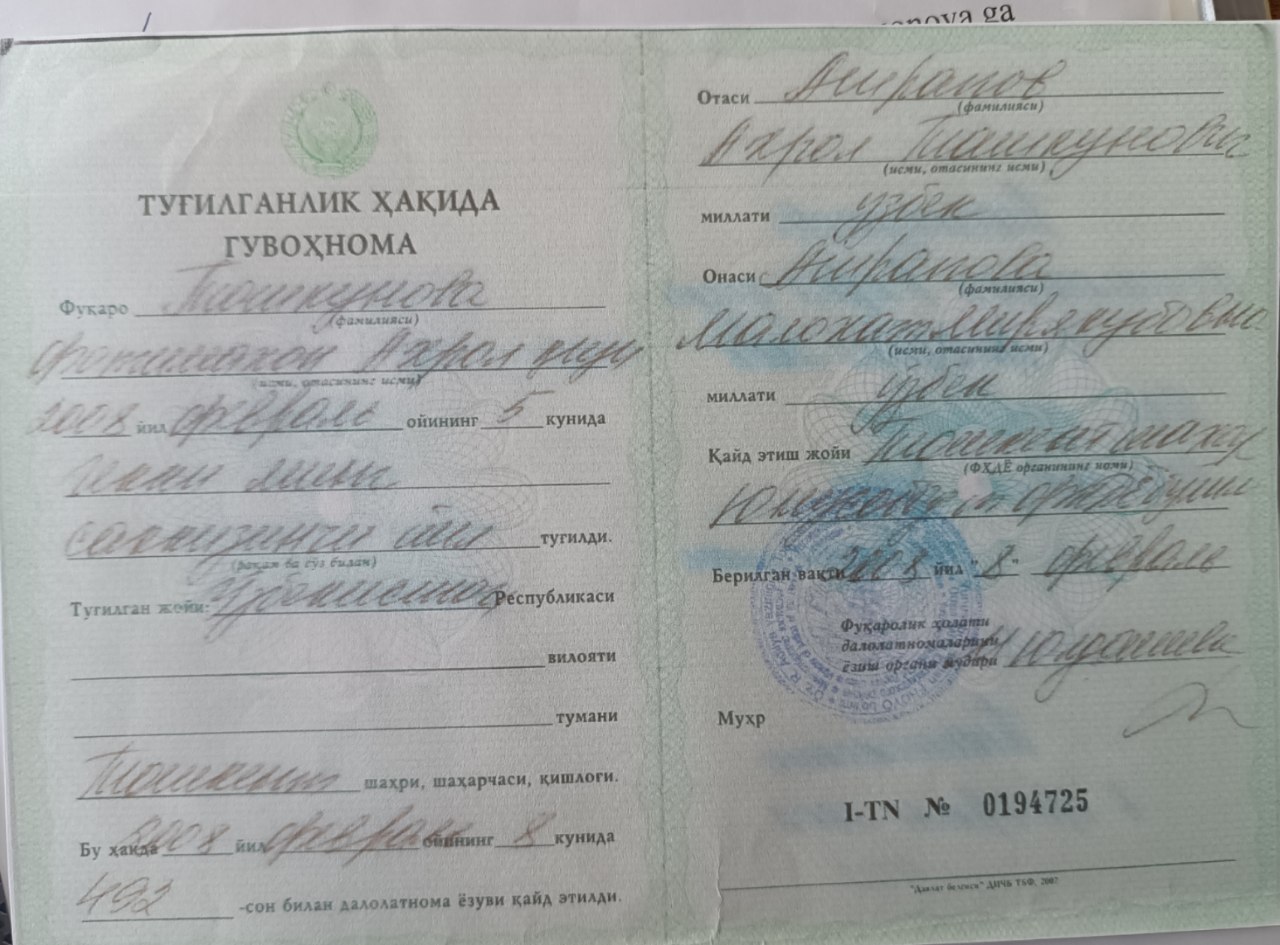 nova ga
ТУҒИЛГАНЛИК ҲАҚИДА
ГУВОҲНОМА
Фуқаро Тошкунова
(фамилияси)
Фотимахон Ахрол қизи
(исми, отасининг исми)
2008 йил февраль ойининг 5 кунида
икки минг
саккизинчи йил туғилди.
(рақам ва сўз билан)
Туғилган жойи: Ўзбекистон Республикаси
вилояти
тумани
Тошкент шаҳри, шаҳарчаси, қишлоғи.
Бу ҳақда 2008 йил февраль ойининг 8 кунида
492 -сон билан далолатнома ёзуви қайд этилди.
Отаси Ашрапов
(фамилияси)
Ахрол Тошкунович
(исми, отасининг исми)
миллати ўзбек
Онаси Ашрапова
(фамилияси)
Малохат Мирякубовна
(исми, отасининг исми)
миллати ўзбек
Қайд этиш жойи Тошкент шахар
(ФҲДЁ органининг номи)
Берилган вақти 2008 йил "8" февраль
Фуқаролик ҳолати
далолатномаларини
ёзиш органи мудири Юлдашева
Муҳр
I-TN № 0194725
"Давлат белгиси" ДИЧБ ТБФ, 2007